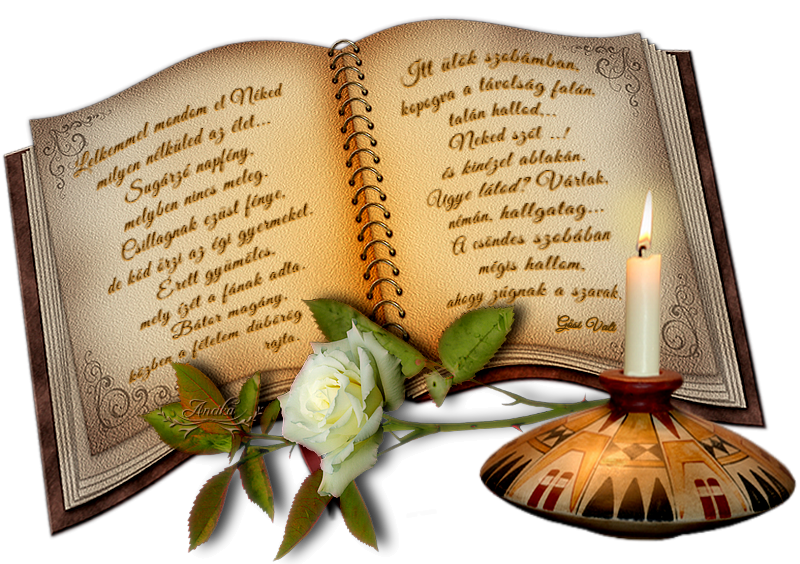 Lelkemmel mondom el Néked
milyen nélküled az élet...
Sugárzó napfény,
melyben nincs meleg.
Csillagnak ezüst fénye,
de köd őrzi az égi gyermeket.
Érett gyümölcs,
mely ízét a fának adta.
Bátor magány,
közben a félelem dübörög
rajta.
Itt ülök szobámban,
kopogva a távolság falán,
talán hallod,..
Neked szól ..!
és kinézel ablakán.
Ugye látod? Várlak,
némán, hallgatag...
A csöndes szobában
mégis hallom,
ahogy zúgnak a szavak.
Güss Vali
Anaka